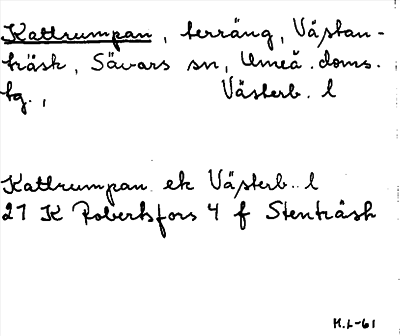 Kattrumpan, terräng, Västan-
träsk, Sävars sn, Umeå.doms.
tg., Västerb. l
Kattrumpan ek Västerb. l
21 K Robertsfors 4 f Stenträsk
H.L-61